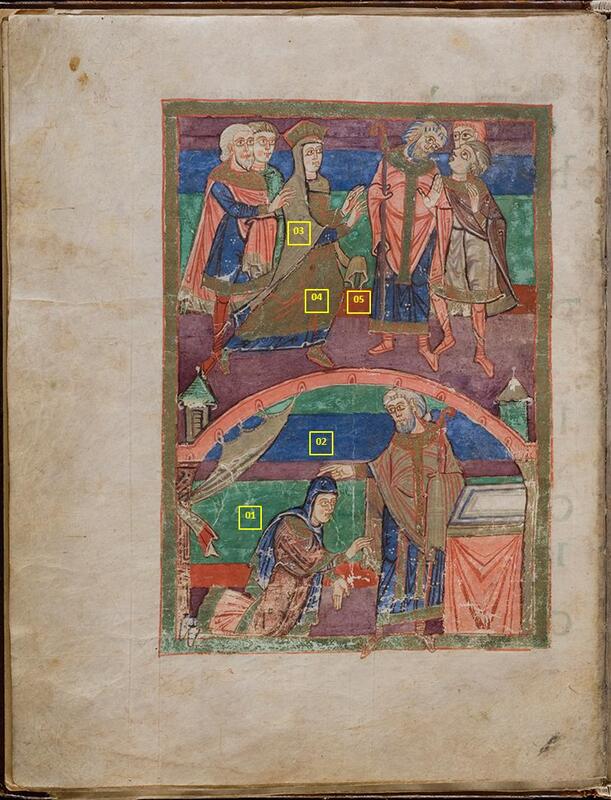 03
04
05
02
01